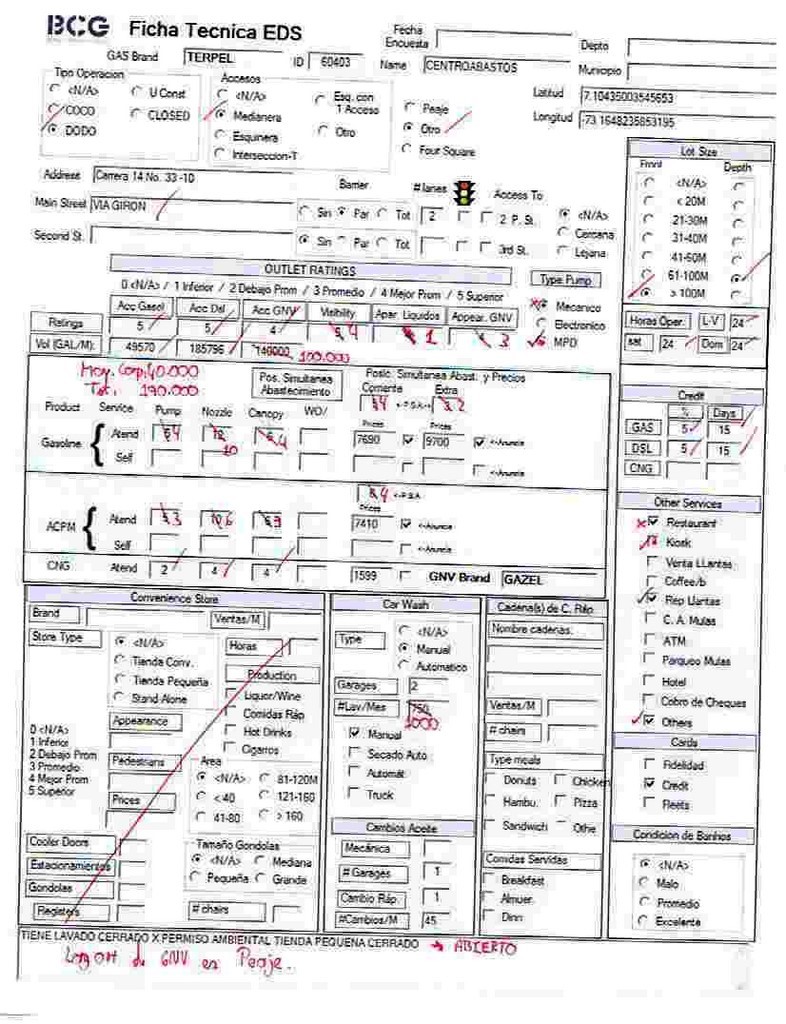 BCG Ficha Tecnica EDS
GAS Brand TERPEL ID 60403
Fecha Encuesta
Name CENTROABASTOS
Depto
Municipio
Latitud 7.10435003545653
Longitud -73.1648235853195
Tipo Operacion
<N/A> U Const
COCO CLOSED
DODO
Accesos
<N/A> Esq. con 1 Acceso
Medianera
Esquinera Otro
Interseccion-T
Peaje
Otro
Four Square
Address Carrera 14 No. 33 -10
Main Street VIA GIRON
Second St.
Barrier # lanes Access To
Sin Par Tot 2 2 P. St.
Sin Par Tot 3rd St.
<N/A>
Cercana
Lejana
Lot Size
Front Depth
<N/A>
< 20M
21-30M
31-40M
41-60M
61-100M
> 100M
OUTLET RATINGS
0 <N/A> / 1 Inferior / 2 Debajo Prom / 3 Promedio / 4 Mejor Prom / 5 Superior
Acc Gasol Acc Dsl Acc GNV Visibility Apar. Liquidos Appear. GNV
Ratings 5 5 4 4 1 3
Vol (GAL/M): 49570 185796 140000 100.000
Type Pump
Mecanico
Electronico
MPD
Horas Oper. L-V 24
sat 24 Dom 24
Hoy. Corp. 40.000
Tot. 190.000
Pos. Simultanea Abastecimiento
Posic. Simultanea Abast. y Precios
Corriente Extra
4 <-P.S.A 2
Product Service Pump Nozzle Canopy WO/
Gasoline Atend 4 12 10 4
Prices Prices
7690 9700 <-Anuncia
Self <-Anuncia
4 <-P.S.A
Prices
ACPM Atend 3 6 3 7410 <-Anuncia
Self <-Anuncia
CNG Atend 2 4 4 1599 GNV Brand GAZEL
Credit
% Days
GAS 5 15
DSL 5 15
CNG
Other Services
Restaurant
Kiosk
Venta LLantas
Coffee/b
Rep Llantas
C. A. Mulas
ATM
Parqueo Mulas
Hotel
Cobro de Cheques
Others
Cards
Fidelidad
Credit
Fleets
Condicion de Banhos
<N/A>
Malo
Promedio
Excelente
Convenience Store
Brand Ventas/M
Store Type
<N/A>
Tienda Conv.
Tienda Pequeña
Stand Alone
Horas
Production
Liquor/Wine
Comidas Ráp
Hot Drinks
Cigarros
0 <N/A>
1 Inferior
2 Debajo Prom
3 Promedio
4 Mejor Prom
5 Superior
Appearance
Pedestrians
Prices
Area
<N/A> 81-120M
< 40 121-160
41-80 > 160
Cooler Doors
Estacionamientos
Gondolas
Registers
Tamaño Gondolas
<N/A> Mediana
Pequeña Grande
# chairs
Car Wash
Type
<N/A>
Manual
Automatico
Garages 2
#Lav/Mes 750
1000
Manual
Secado Auto
Automát
Truck
Cambios Aceite
Mecánica
# Garages 1
Cambio Ráp. 1
#Cambios/M 45
Cadena(s) de C. Ráp
Nombre cadenas.
Ventas/M
# chairs
Type meals
Donuts Chicken
Hambu. Pizza
Sandwich Othe
Comidas Servidas
Breakfast
Almuer
Dinn
TIENE LAVADO CERRADO X PERMISO AMBIENTAL TIENDA PEQUENA CERRADO → ABIERTO
de GNV en Peaje.